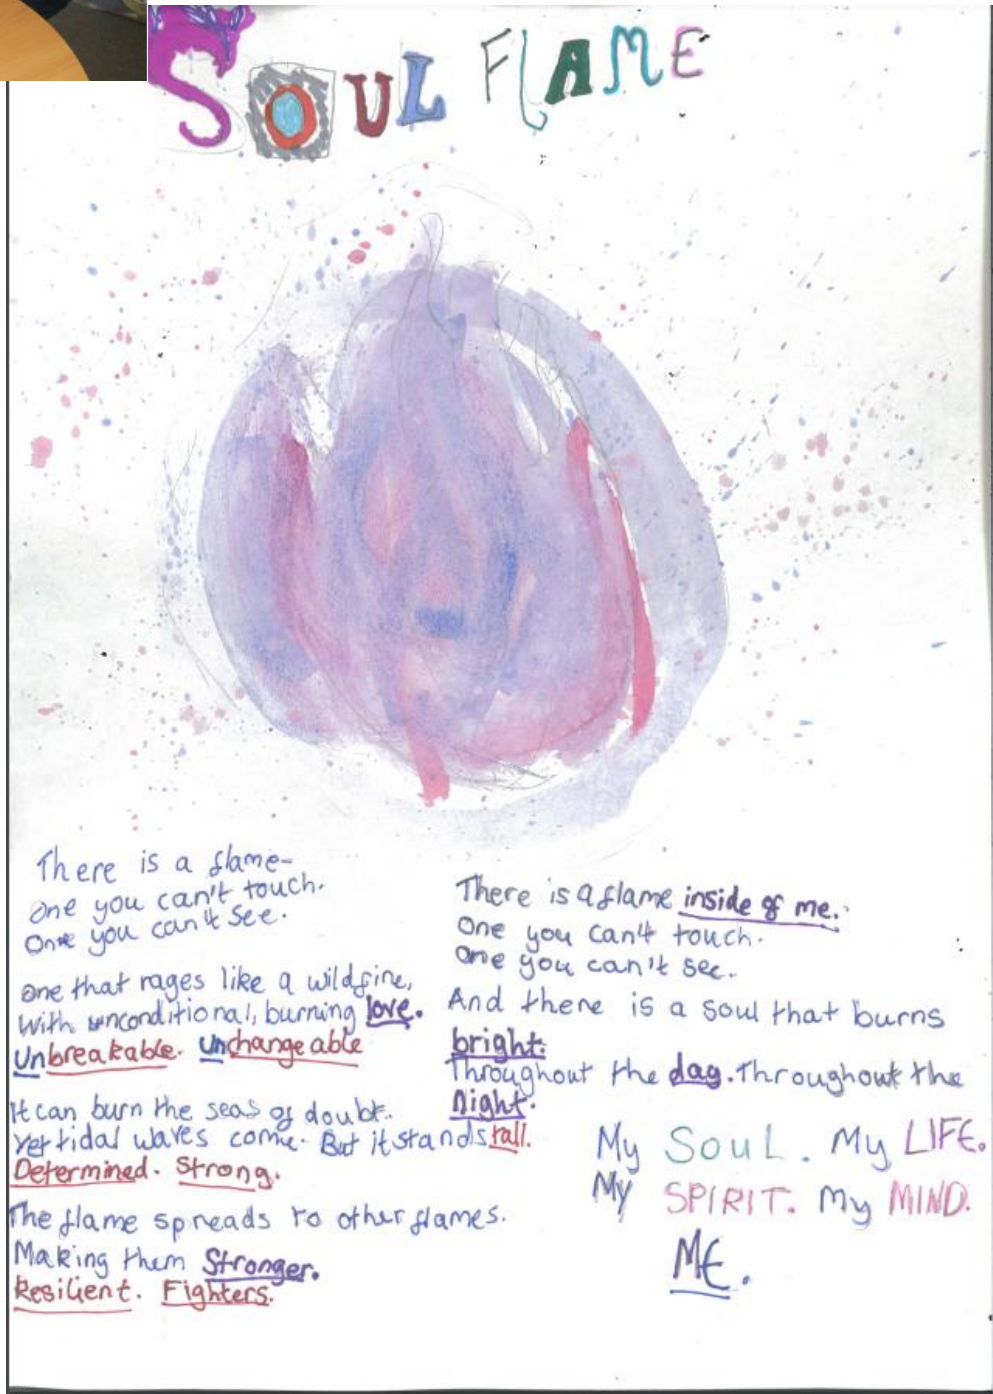 SOUL FLAME
There is a flame-
One you can't touch.
One you can't see.
One that rages like a wildfire,
With unconditional, burning love.
Unbreakable. Unchangeable
It can burn the seas of doubt.
Yet tidal waves come. But it stands tall.
Determined. Strong.
The flame spreads to other flames.
Making them Stronger.
Resilient. Fighters.
There is a flame inside of me.
One you can't touch.
One you can't see.
And there is a soul that burns
bright.
Throughout the day. Throughout the
Night.
My SOUL. My LIFE.
My SPIRIT. My MIND.
ME.